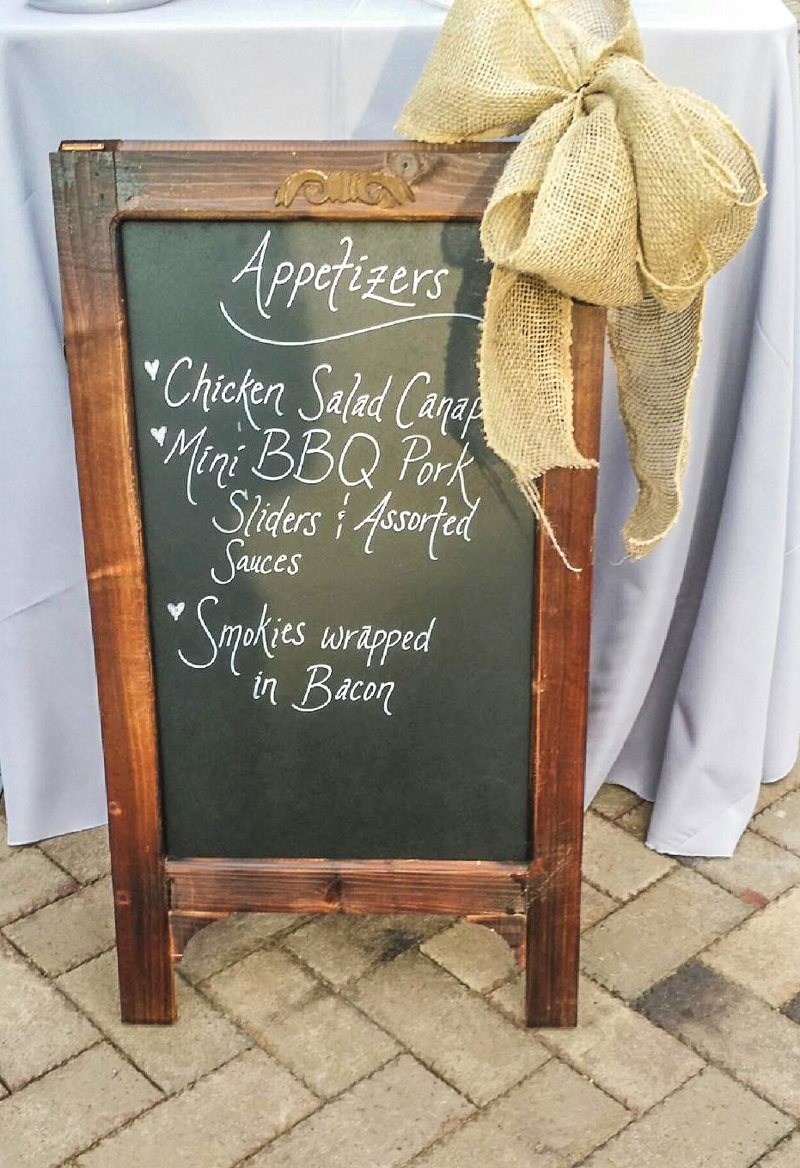 Appetizers
Chicken Salad Canap
Mini BBQ Pork
Sliders & Assorted
Sauces
Smokies wrapped
in Bacon